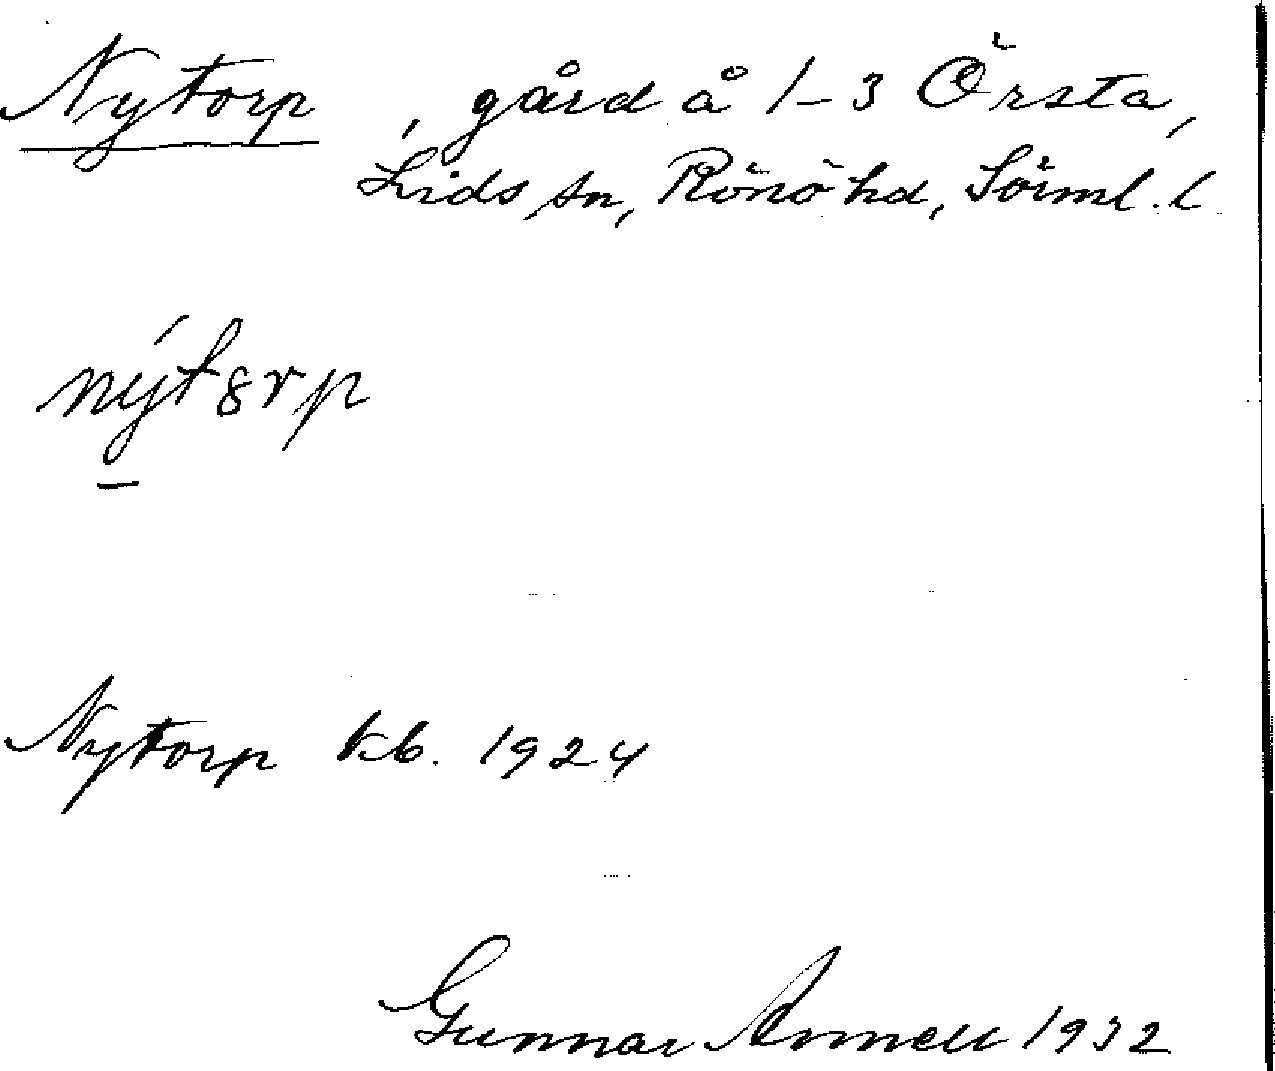 Nytorp, gård å 1-3 Örsta,
Lids sn, Rönö hd, Sörml. l
nýt8rp
Nytorp kb. 1924
Gunnar Annell 1932